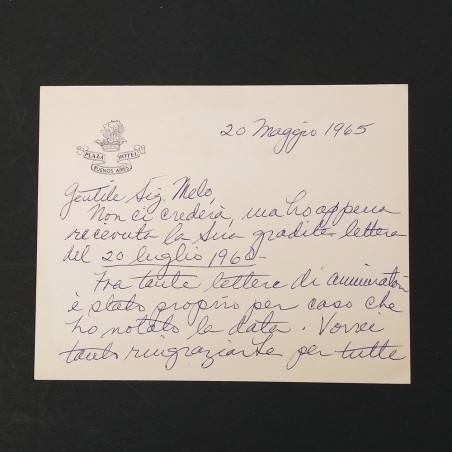 PLAZA HOTEL
BUENOS AIRES
20 Maggio 1965
Gentile Sig. Melo,
Non ci crederà, ma ho appena
ricevuta la Sua gradita lettera
del 20 luglio 1960 -
Fra tante lettere di ammiratori
è stato proprio per caso che
ho notato la data. Vorrei
tanto ringraziarLa per tutte